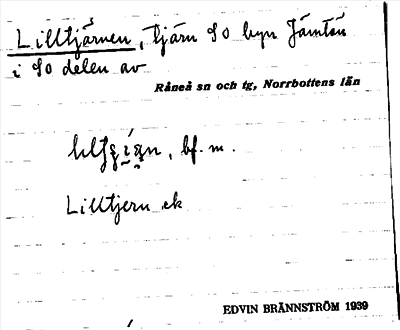 Lilltjärnen, tjärn SO byn Jämtön
i SO delen av
Råneå sn och tg, Norrbottens län
bf. m.
Lilltjern ek
EDVIN BRÄNNSTRÖM 1939